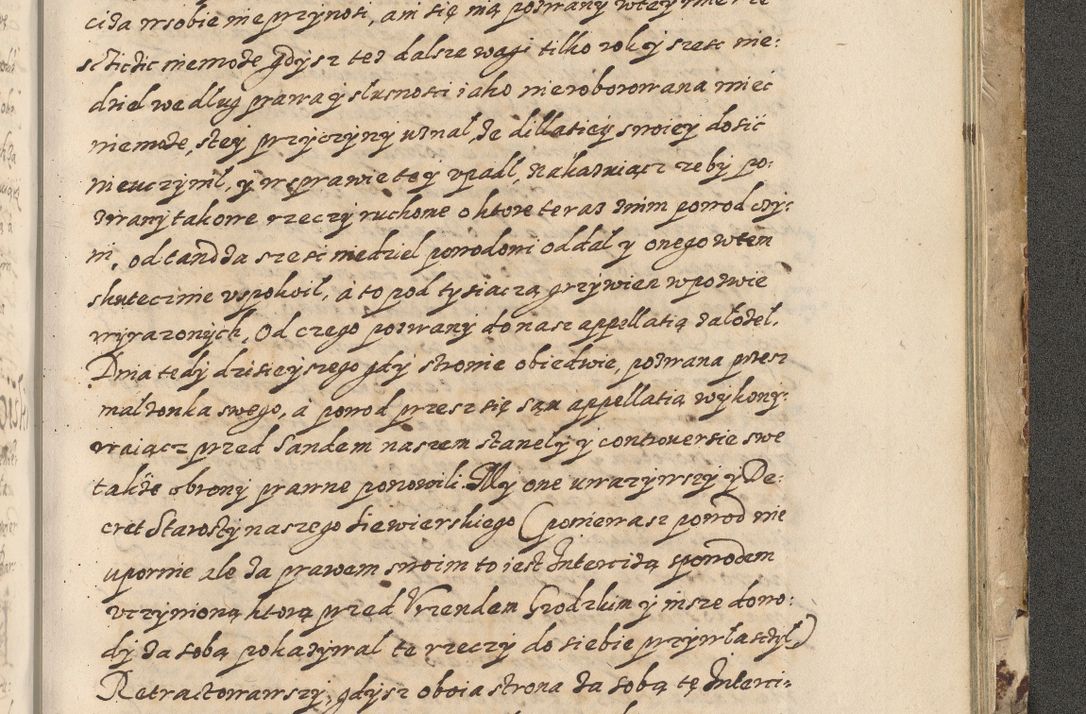 cida w sobie nie przynosi, ani się ma pozwany w tey mierze
scicic niemoże gdysz też dalsze wagi tilko rok y szesc nie:
dziel według prawa y slusnosci i ako nieroborowana miec
niemoże, stey przyczyny uznal, że dillatiey swoiey dosić
nieuczynil, y w sprawie tey vpadl, nakazuiącz zeby po:
zwany takowe rzeczy ruchome o ktore teraz znim powod czy:
ni, od tandda szesc niedziel powodowi oddal y onego w tem
skutecznie vspokoil, à to pod tysiaczą grzywien w pozwie
wyrazonych, Od czego pozwany do nasz appellatią założel.
Dnia tedy dzisieyszego gdy stronie obiedwie, pozwana przez
malzonka swego, à powod przesz się sąm appellatią wykony:
waiącz przed Sandem naszem stanely y controuersie swe
także obrony prawne ponowili. My one uwazywszy y De:
cret Starosty naszego Siewierskiego (poniewasz powod nie
upornie ale za prawem swoim to iest Intercizą spowodem
vczynioną ktorą przed Vrzendem Grodzkim y insze dowo:
dy za sobą pokazywal te rzeczy do siebie przywlasczyl)
Retractowawszy, gdysz oboia strona za sobą tę Interci: